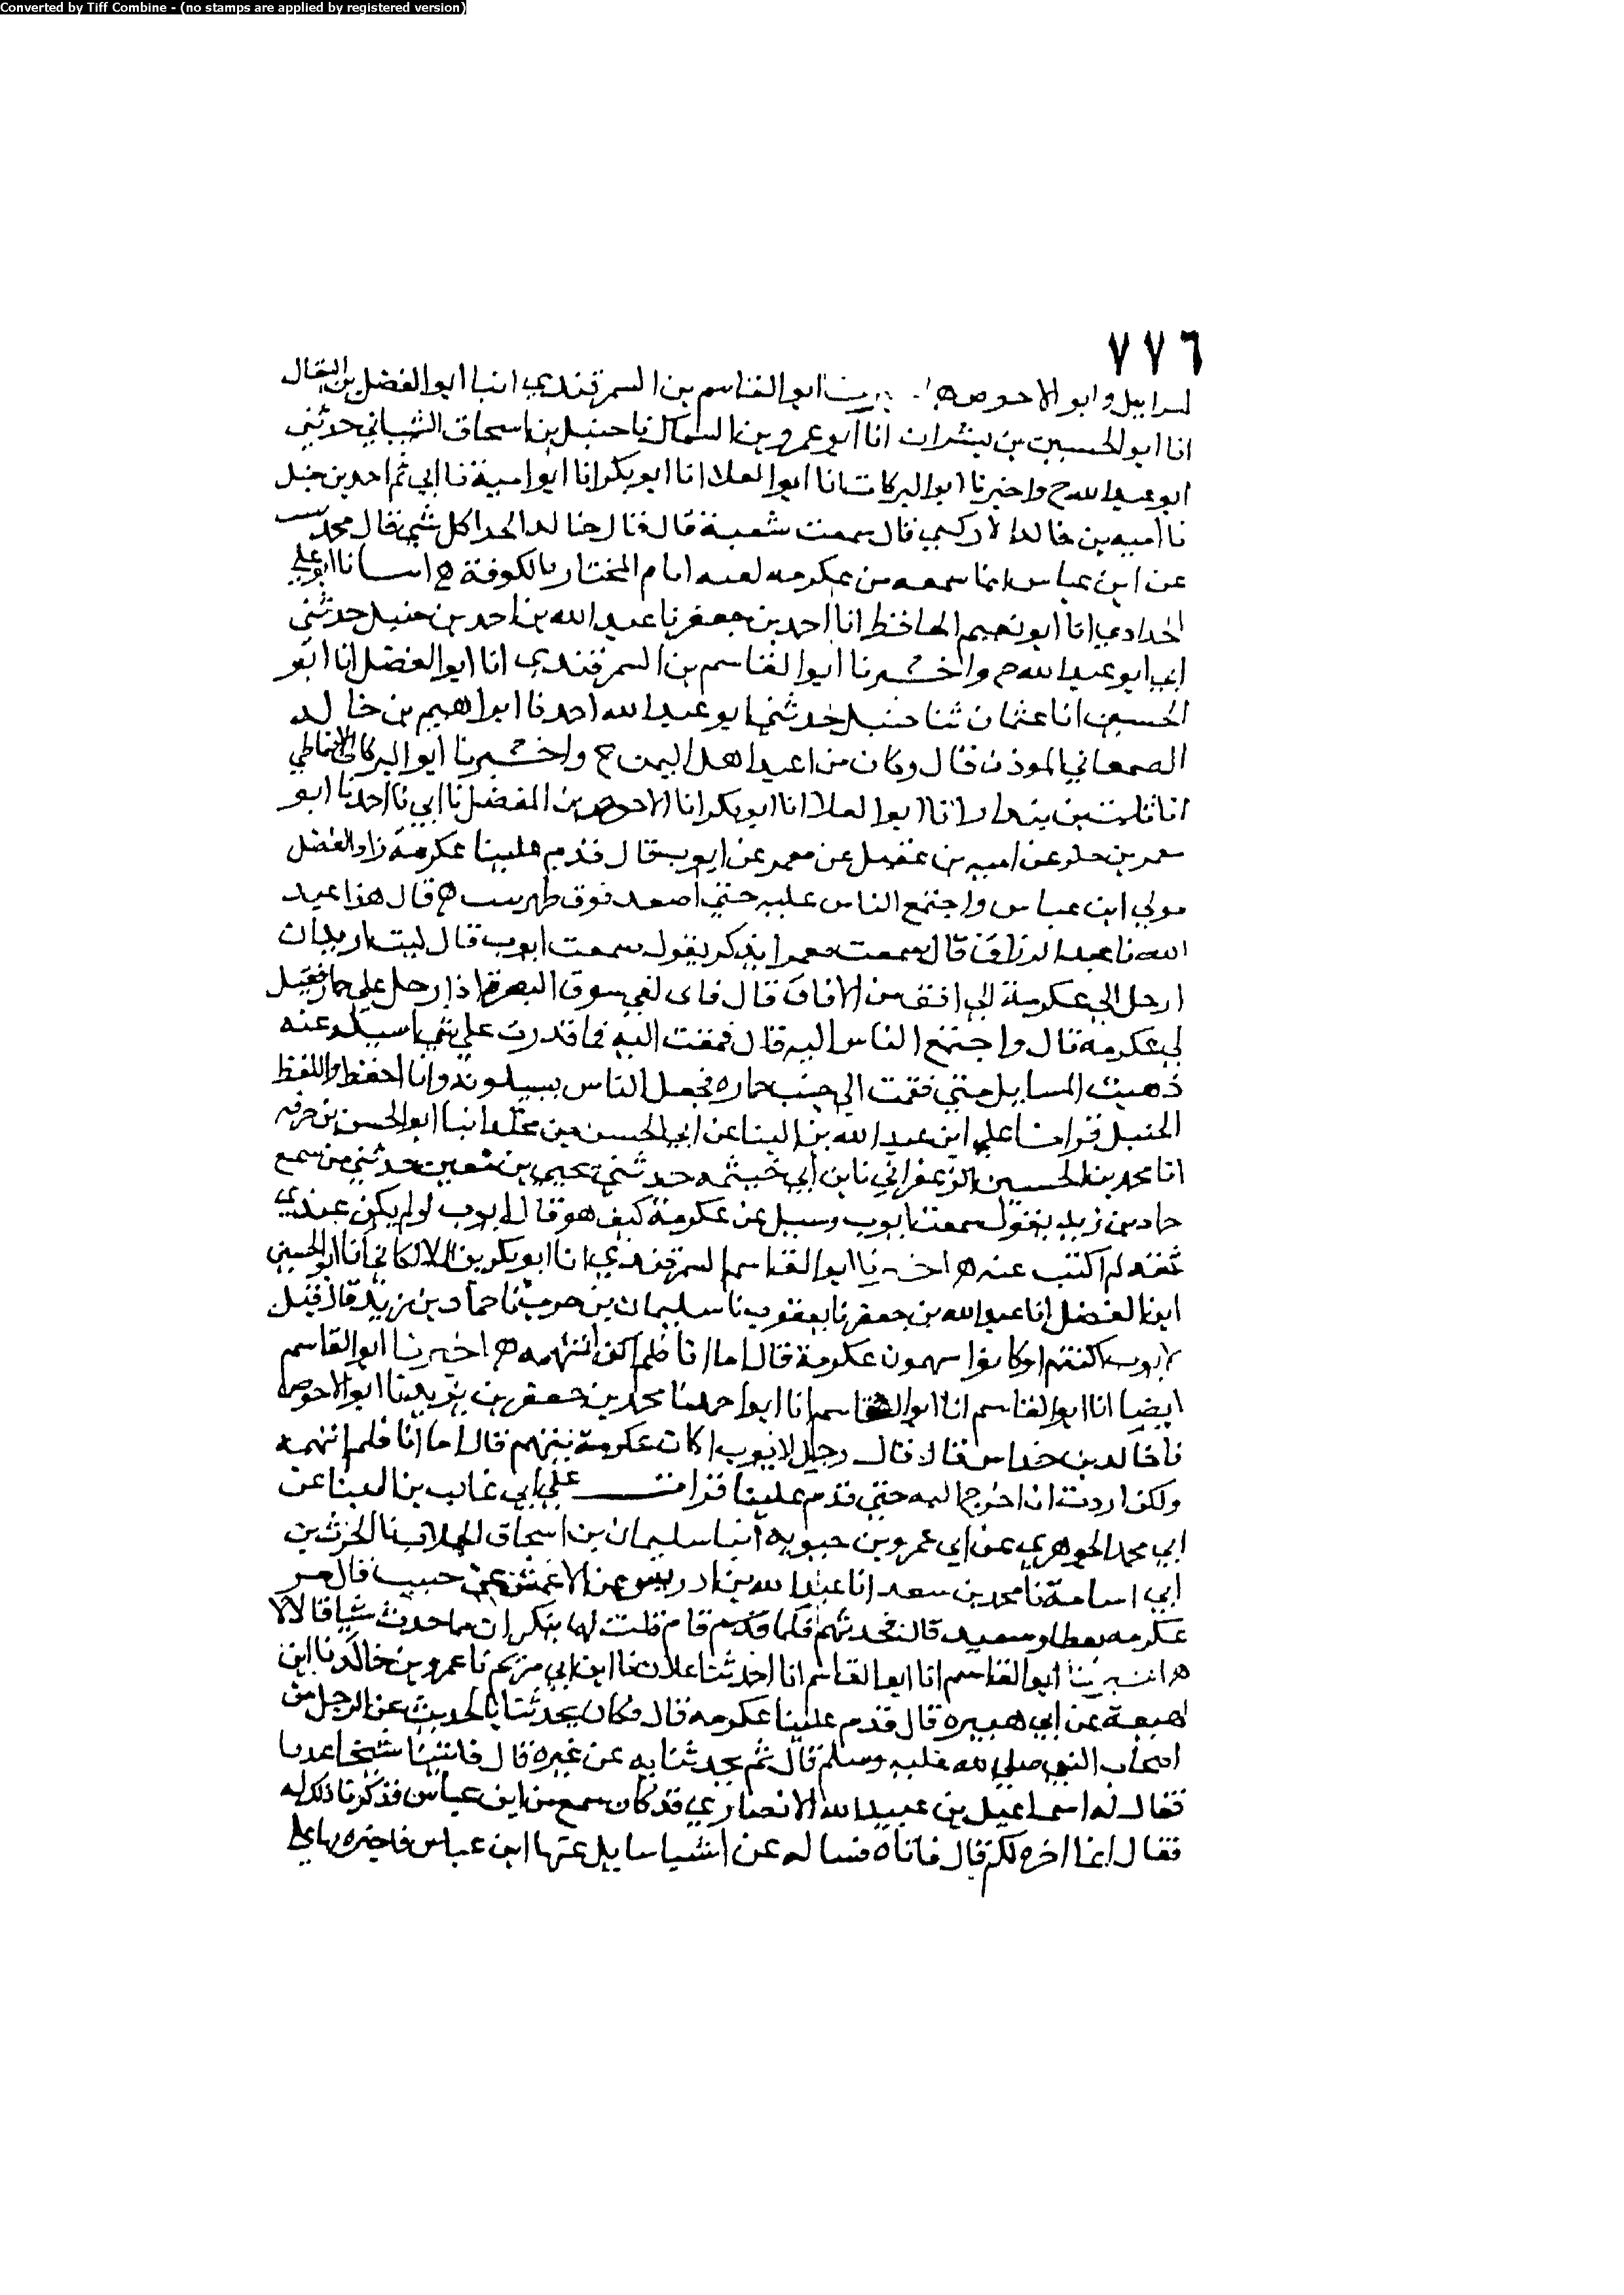 Converted by Tiff Combine - (no stamps are applied by registered version)
٧٧٦
اسرابيل وابو الاحوص ابو القاسم بن السمرقندي انبا ابو الفضل بن البقال
انا ابو الحسين بن بشران انا ابو عمرو بن السماك نا حنبل بن اسحاق الشيباني حدثني
ابو عبد الله ح واخبرنا ابو البركات انا ابو العلا انا ابو بكر انا ابو امية نا ابي ثم احمد بن حنبل
نا امية بن خالد قال سمعت شعبة قال قال خالد الحذا كل شي قال محمد
عن ابن عباس انما سمعه من عكرمه لقيه ايام المختار بالكوفة ه انا ابو علي
الحدادي انا ابو نعيم الحافظ انا احمد بن جعفر نا عبد الله بن احمد بن حنبل حدثني
ابي ابو عبد الله ح واخبرنا ابو القاسم بن السمرقندي انا ابو الفضل انا ابو
الحسين انا عثمان ثنا حنبل حدثني ابو عبد الله احمد نا ابراهيم بن خالد
الصمعاني الموذن قال وكان من اهل اليمن ح واخبرنا ابو البركات الانماطي
انا ثابت بن بندار انا ابو العلا انا ابو بكر انا الاحوص بن المفضل نا ابي نا احمد نا ابو
عن اميه بن عن معمر عن ايوب قال قدم علينا عكرمة زاد الفضل
مولي ابن عباس واجتمع الناس عليه حتي اصعد فوق ظهر بيت ه قال هذا عبد
الله نا عبد الرزاق قال سمعت معمرا يذكر يقول سمعت ايوب قال كنت اريد ان
ارحل الي عكرمة الي افق من الافاق قال فاني لفي سوق البصرة اذا رجل علي حمار فقيل
لي عكرمة قال واجتمع الناس اليه قال فقمت اليه فما قدرت علي شي اسيله عنه
ذهبت المسايل مني فقمت الي جنب حماره فجعل الناس يسيلونه وانا احفظ واللفظ
لحنبل قرانا علي ابن عبد الله بن البنا عن ابي الحسن بن مخلد انبا ابو الحسن بن خزفه
انا محمد بن الحسين الزعفراني نا بن ابي خيثمه حدثني يحيي بن معين حدثني من سمع
حماد بن زيد يقول سمعت ايوب وسيل عن عكرمة كيف هو قال ايوب لو لم يكن عندي
ثقه لم اكتب عنه ه اخبرنا ابو القاسم السمرقندي انا ابو بكر بن اللالكاني انا ابو الحسين
ابن الفضل انا عبد الله بن جعفر نا يعقوب نا سليمان بن حرب نا حماد بن زيد قال قيل
لايوب اكنتم اوكانوا يتهمون عكرمة قال اما انا فلم اكن اتهمه ه اخبرنا ابو القاسم
ايضا انا ابو القاسم انا ابو القاسم انا ابو احمد نا محمد بن جعفر بن يزيد نا ابو الاحوص
نا خالد بن خداش قال قال رجل لايوب اكان عكرمة يتهم قال اما انا فلم اتهمه
ولكن اردت ان اخرج اليه حتي قدم علينا قرات علي ابي غالب بن البنا عن
ابي محمد الجوهري عن ابي عمرو بن حيويه انبا سليمان بن اسحاق الجلاب نا الحرث بن
ابي اسامة نا محمد بن سعد انا عبد الله بن ادريس عن الاعمش عن حبيب قال مر
عكرمه بعطا وسعيد قال فحدثهم فلما قام قلت لهما تنكران مما حدث شيا قالا لا
ه اخبرنا ابو القاسم انا ابو القاسم انا حدثنا علان نا ابن ابي مريم نا عمرو بن خالد نا ابن
لهيعة عن ابي هبيره قال قدم علينا عكرمه قال فكان يحدثنا بالحديث عن الرجل من
اصحاب النبي صلي الله عليه وسلم قال ثم يحدثنا به عن غيره قال فاتينا شيخا عدنا
فقال له اسماعيل بن عبيد الله الانصاري قد كان سمع من ابن عباس فذكرنا ذلك له
فقال انما اخرج لكم قال فاتاه فساله عن اشيا سايل عنها ابن عباس فاخبره بها علي